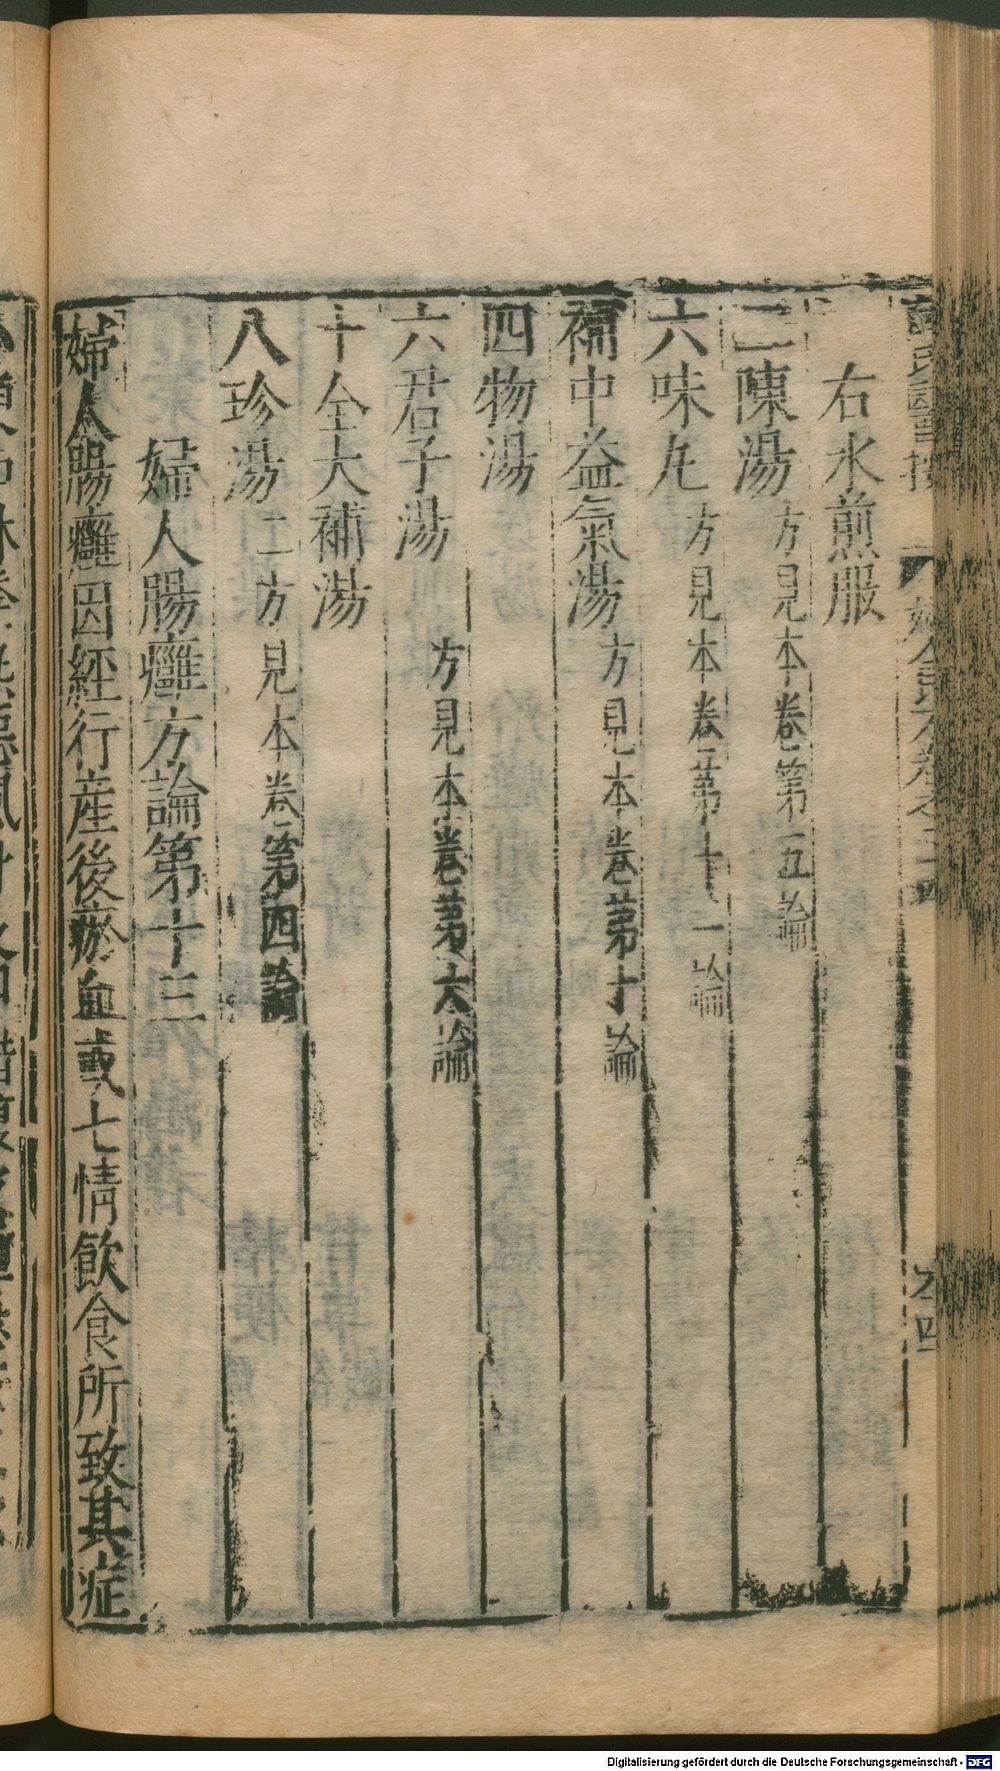 右水煎服
二陳湯 方見本卷第五論
六味丸 方見本卷第十一論
補中益氣湯 方見本卷第十論
四物湯
六君子湯 方見本卷第六論
十全大補湯
八珍湯 二方見本卷第四論
婦人腸癰方論第十三
婦人腸癰因經行産後瘀血或七情飲食所致其症
Digitalisierung gefördert durch die Deutsche Forschungsgemeinschaft - DFG